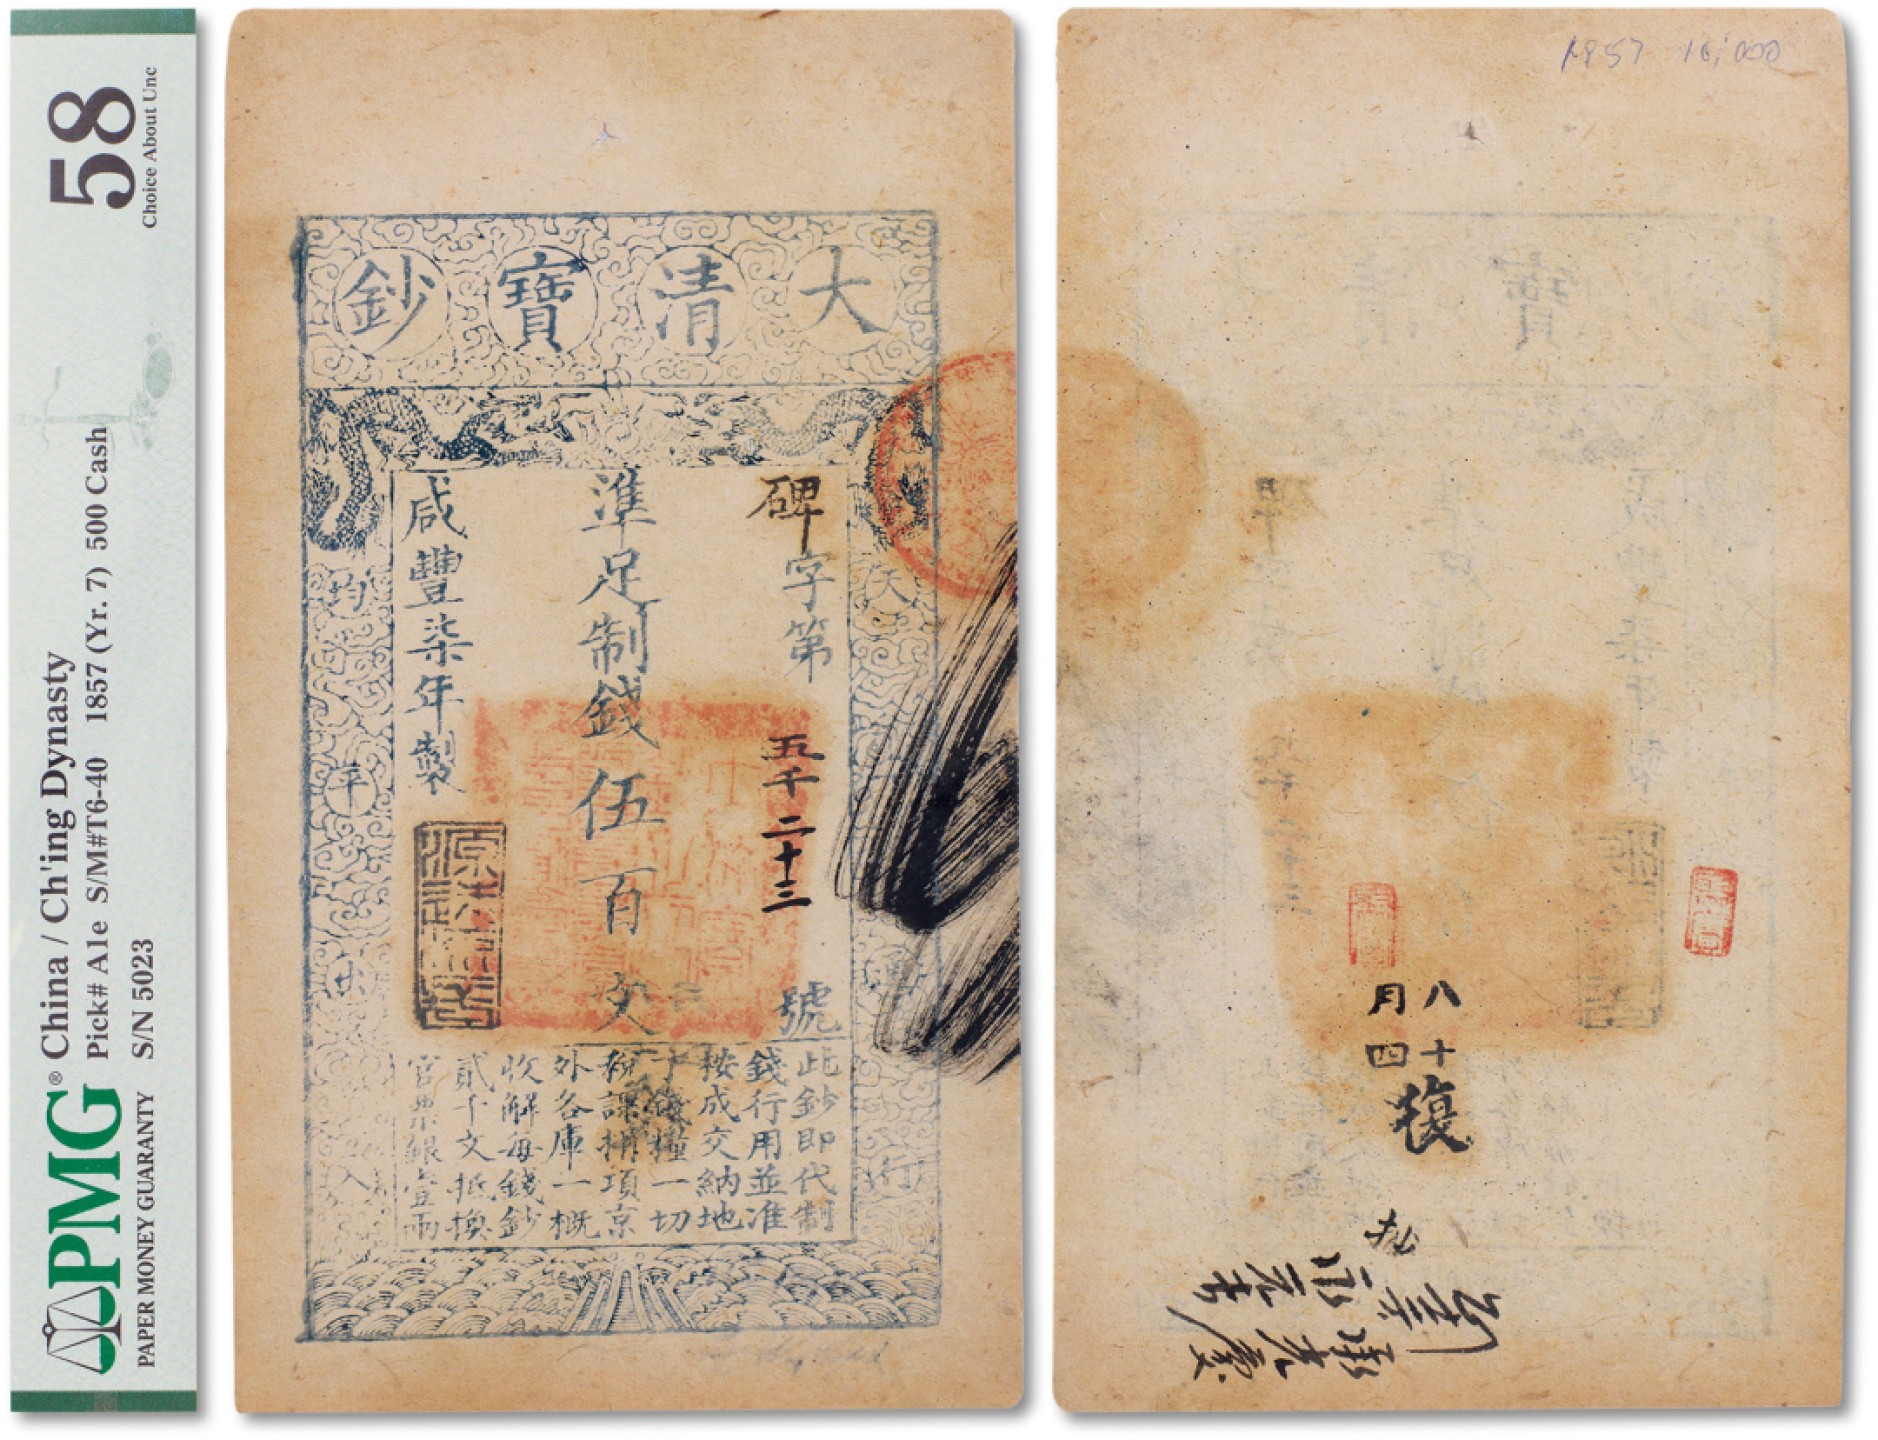 58
Choice About Unc
China / Ch'ing Dynasty
Pick# A1e S/M#T6-40 1857 (Yr. 7) 500 Cash
S/N 5023
PMG®
PAPER MONEY GUARANTY
大清寶鈔
碑字第五千二十三號
準足制錢伍百文
咸豐柒年製
天下
行
均平出入
此鈔即代制
錢行用並准
按成交納地
丁錢糧一切
稅課捐項京
外各庫一概
收解每錢鈔
貳千文抵換
官票銀壹兩
1857 16,000
八十
月四
復